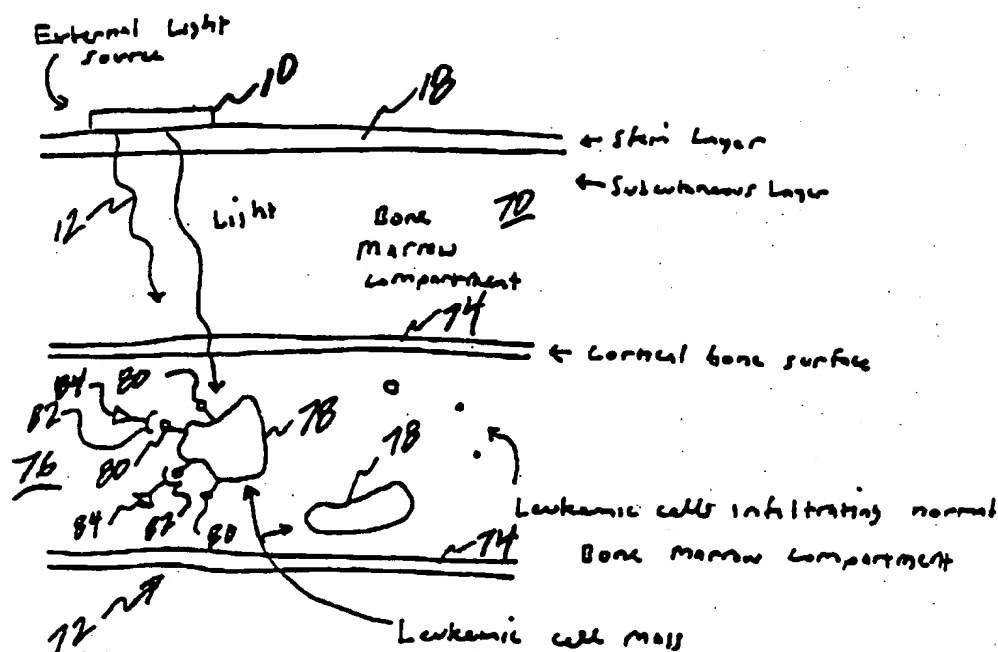 External Light
Source
10
18
← Skin Layer
← Subcutaneous Layer
12
Light
70
Bone
Marrow
compartment
74
← Cortical bone surface
84
80
82
78
76
80
78
84
82
80
Leukemic cells infiltrating normal
Bone Marrow Compartment
74
72
Leukemic cell mass